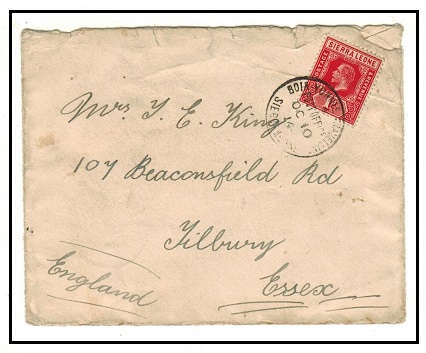 SIERRA LEONE
POSTAGE
OC 10
Mrs T. E. King
107 Beaconsfield Rd
Tilbury
Essex
England